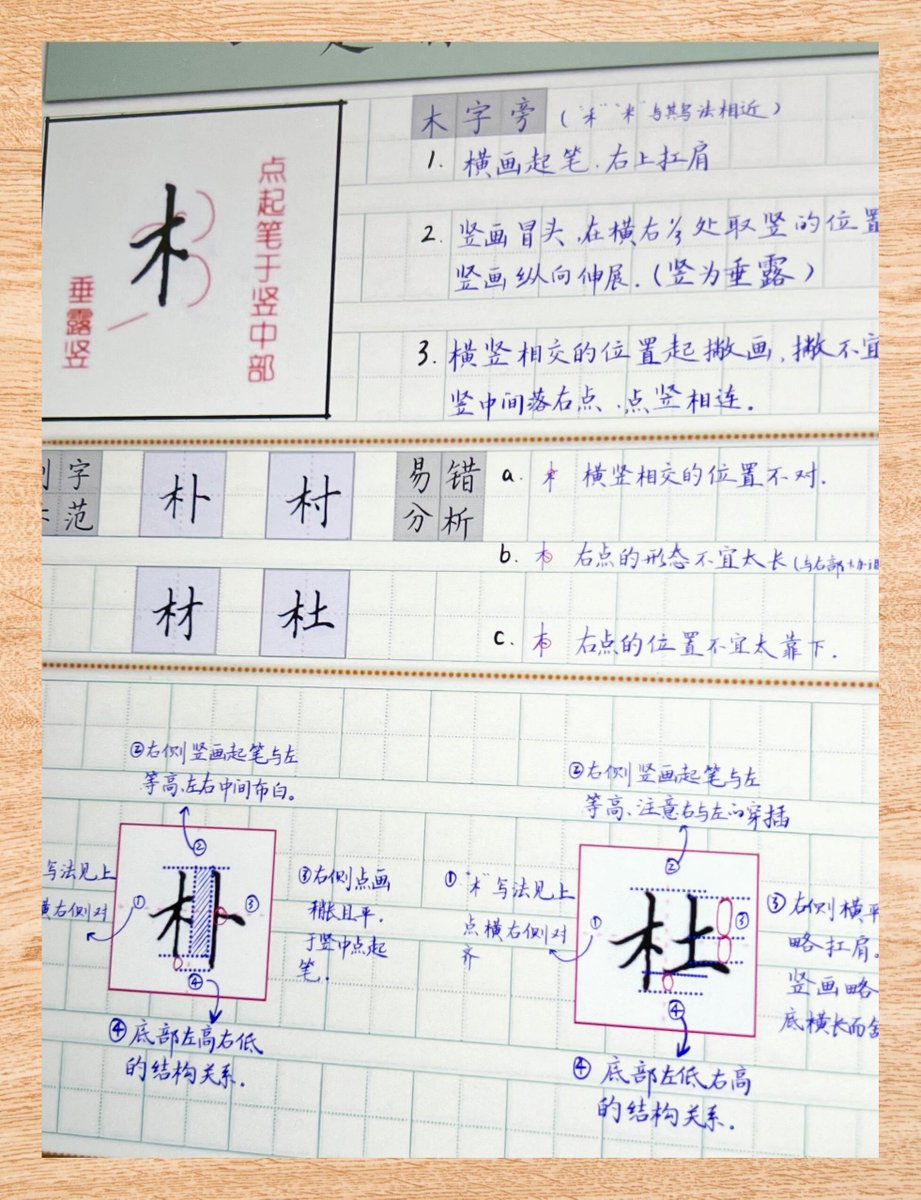 点起笔于竖中部
垂露竖
木字旁（"禾""米"与其写法相近）
1. 横画起笔、右上扛肩
2. 竖画冒头、在横右⅓处取竖的位置
竖画纵向伸展.（竖为垂露）
3. 横竖相交的位置起撇画，撇不宜
竖中间落右点、点竖相连.
字
范
朴 村
材 杜
易错
分析
a. 横竖相交的位置不对.
b. 右点的形态不宜太长(与右部
c. 右点的位置不宜太靠下.
②右侧竖画起笔与左
等高、左右中间布白。
写法见上
横右侧对
① ② ③ ④
朴
③右侧点画
稍长且平.
于竖中点起
笔.
④底部左高右低
的结构关系.
②右侧竖画起笔与左
等高、注意右与左的穿插
①"木"写法见上
点横右侧对
齐
① ② ③ ④
杜
③右侧横平
略扛肩。
竖画略
底横长而
④底部左低右高
的结构关系.